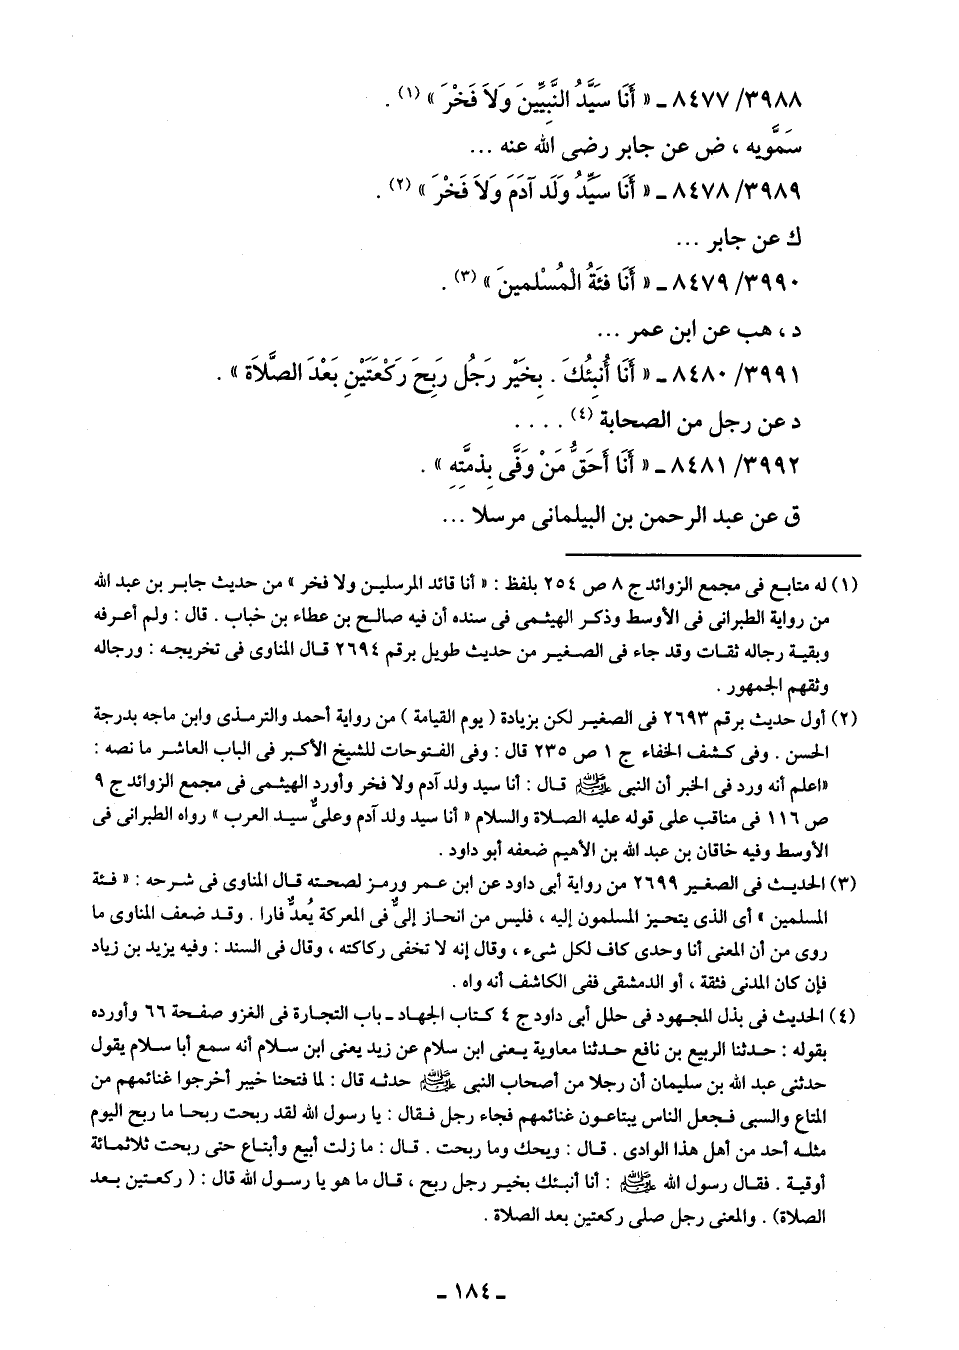 ٣٩٨٨/ ٨٤٧٧ ـ « أَنَا سَيَّدُ النَّبِيِّينَ وَلاَ فَخْرَ » (١) .
سَمَّويه ، ض عن جابر رضى الله عنه ...
٣٩٨٩/ ٨٤٧٨ ـ « أَنَا سَيِّدُ وَلَد آدَمَ وَلاَ فَخْرَ » (٢) .
ك عن جابر ...
٣٩٩٠/ ٨٤٧٩ ـ « أَنَا فئَةُ الْمُسْلمينَ » (٣) .
د ، هب عن ابن عمر ...
٣٩٩١/ ٨٤٨٠ ـ « أَنَا أُنبِئُكَ . بِخَيْر رَجُل رَبِحَ رَكْعَتَيْنِ بَعْدَ الصَّلاَة » .
د عن رجل من الصحابة (٤) . . . .
٣٩٩٢/ ٨٤٨١ ـ « أَنَا أَحَقُّ مَنْ وَفَّى بِذمَّتِهِ » .
ق عن عبد الرحمن بن البيلمانى مرسلا ...
(١) له متابع فى مجمع الزوائد ج ٨ ص ٢٥٤ بلفظ : « أنا قائد المرسلين ولا فخر » من حديث جابر بن عبد الله
من رواية الطبرانى فى الأوسط وذكر الهيثمى فى سنده أن فيه صالح بن عطاء بن خباب . قال : ولم أعرفه
وبقية رجاله ثقات وقد جاء فى الصغير من حديث طويل برقم ٢٦٩٤ قال المناوى فى تخريجه : ورجاله
وثقهم الجمهور .
(٢) أول حديث برقم ٢٦٩٣ فى الصغير لكن بزيادة ( يوم القيامة ) من رواية أحمد والترمذى وابن ماجه بدرجة
الحسن . وفى كشف الخفاء ج ١ ص ٢٣٥ قال : وفى الفتوحات للشيخ الأكبر فى الباب العاشر ما نصه :
«اعلم أنه ورد فى الخبر أن النبى ﷺ قال : أنا سيد ولد آدم ولا فخر وأورد الهيثمى فى مجمع الزوائد ج ٩
ص ١١٦ فى مناقب على قوله عليه الصلاة والسلام « أنا سيد ولد آدم وعلىٌّ سيد العرب » رواه الطبرانى فى
الأوسط وفيه خاقان بن عبد الله بن الأهيم ضعفه أبو داود .
(٣) الحديث فى الصغير ٢٦٩٩ من رواية أبى داود عن ابن عمر ورمز لصحته قال المناوى فى شرحه : « فئة
المسلمين » أى الذى يتحيز المسلمون إليه ، فليس من انحاز إلىٌّ فى المعركة يُعدُّ فارا . وقد ضعف المناوى ما
روى من أن المعنى أنا وحدى كاف لكل شىء ، وقال إنه لا تخفى ركاكته ، وقال فى السند : وفيه يزيد بن زياد
فإن كان المدنى فثقة ، أو الدمشقى ففى الكاشف أنه واه .
(٤) الحديث فى بذل المجهود فى حلل أبى داود ج ٤ كتاب الجهاد ـ باب التجارة فى الغزو صفحة ٦٦ وأورده
بقوله : حدثنا الربيع بن نافع حدثنا معاوية يعنى ابن سلام عن زيد يعنى ابن سلام أنه سمع أبا سلام يقول
حدثنى عبد الله بن سليمان أن رجلا من أصحاب النبى ﷺ حدثه قال : لما فتحنا خيبر أخرجوا غنائمهم من
المتاع والسبى فجعل الناس يبتاعون غنائمهم فجاء رجل فقال : يا رسول الله لقد ربحت ربحا ما ربح اليوم
مثله أحد من أهل هذا الوادى . قال : ويحك وما ربحت . قال : ما زلت أبيع وأبتاع حتى ربحت ثلاثمائة
أوقية . فقال رسول الله ﷺ : أنا أنبئك بخير رجل ربح ، قال ما هو يا رسول الله قال : ( ركعتين بعد
الصلاة) . والمعنى رجل صلى ركعتين بعد الصلاة .
ـ ١٨٤ ـ